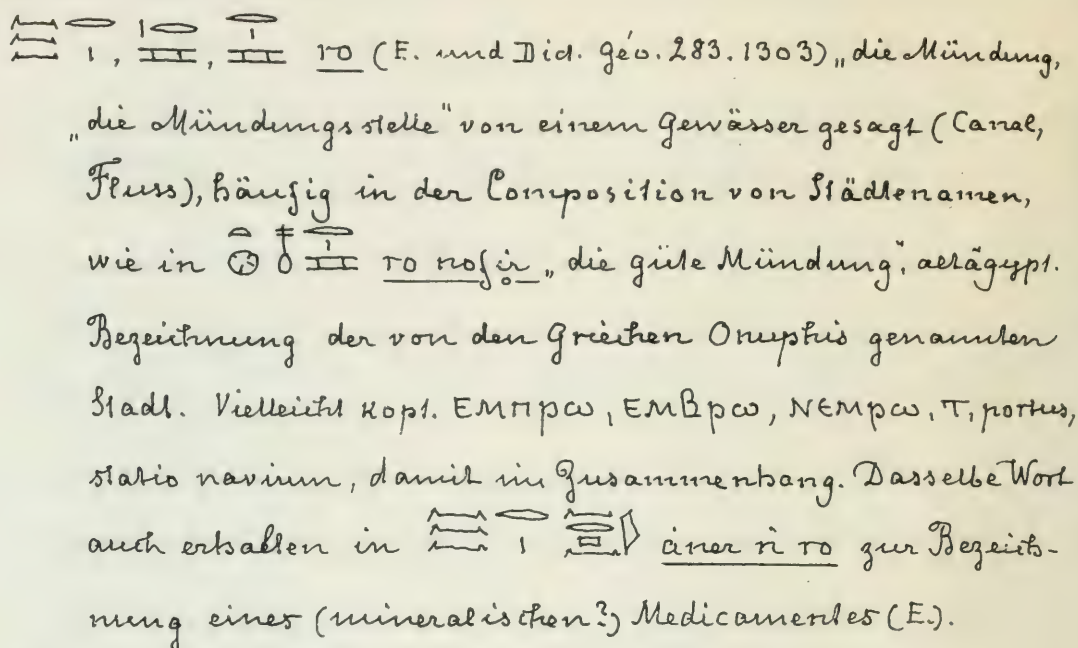 𓈗 𓂋𓏤, 𓏤𓂋𓈇, 𓂋𓏤𓈇 ro (E. und Dict. géo. 283. 1303) „die Mündung,
„die Mündungsstelle“ von einem Gewässer gesagt (Canal,
Fluss), häufig in der Composition von Städtenamen,
wie in ro nofir „die gute Mündung“, altägypt.
Bezeichnung der von den Griechen Onuphis genannten
Stadt. Vielleicht kopt. ⲉⲙⲡⲣⲱ, ⲉⲙⲃⲣⲱ, ⲛⲉⲙⲣⲱ, ⲧ, portus,
statio navium, damit im Zusammenhang. Dasselbe Wort
auch erhalten in áner ṅ ro zur Bezeich-
nung eines (mineralischen?) Medicamentes (E.).